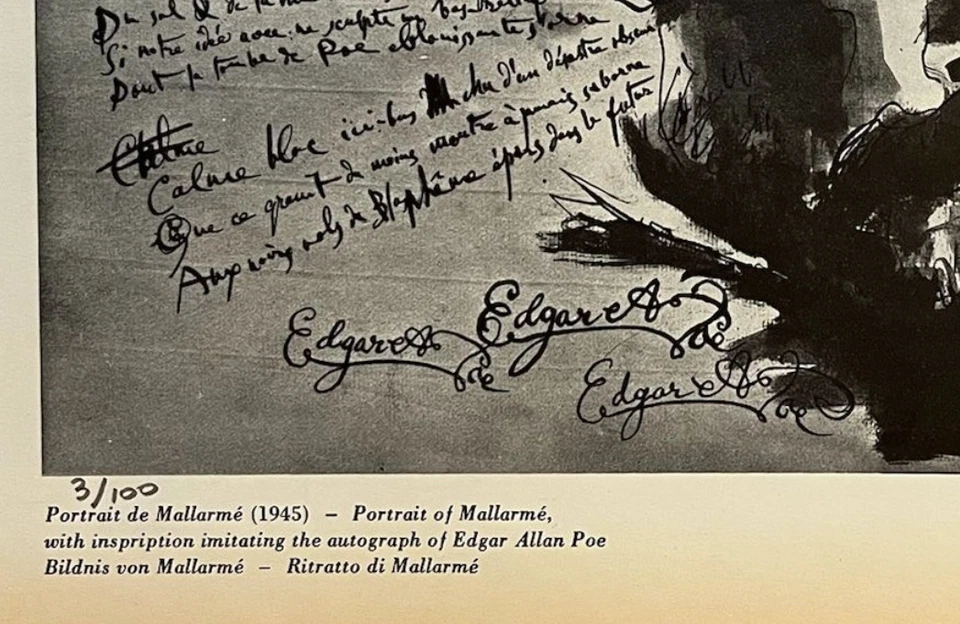 Du sol & de la
Si notre idée avec ne sculpte un bas-relief
Dont la tombe de Poe éblouissante s'orne
Calme
Calme bloc ici-bas chu d'un désastre obscur
Que ce granit du moins montre à jamais sa borne
Aux noirs vols du Blasphême épars dans le futur
Edgar A Poe
Edgar A Poe
Edgar A Poe
3/100
Portrait de Mallarmé (1945) – Portrait of Mallarmé,
with inspription imitating the autograph of Edgar Allan Poe
Bildnis von Mallarmé – Ritratto di Mallarmé